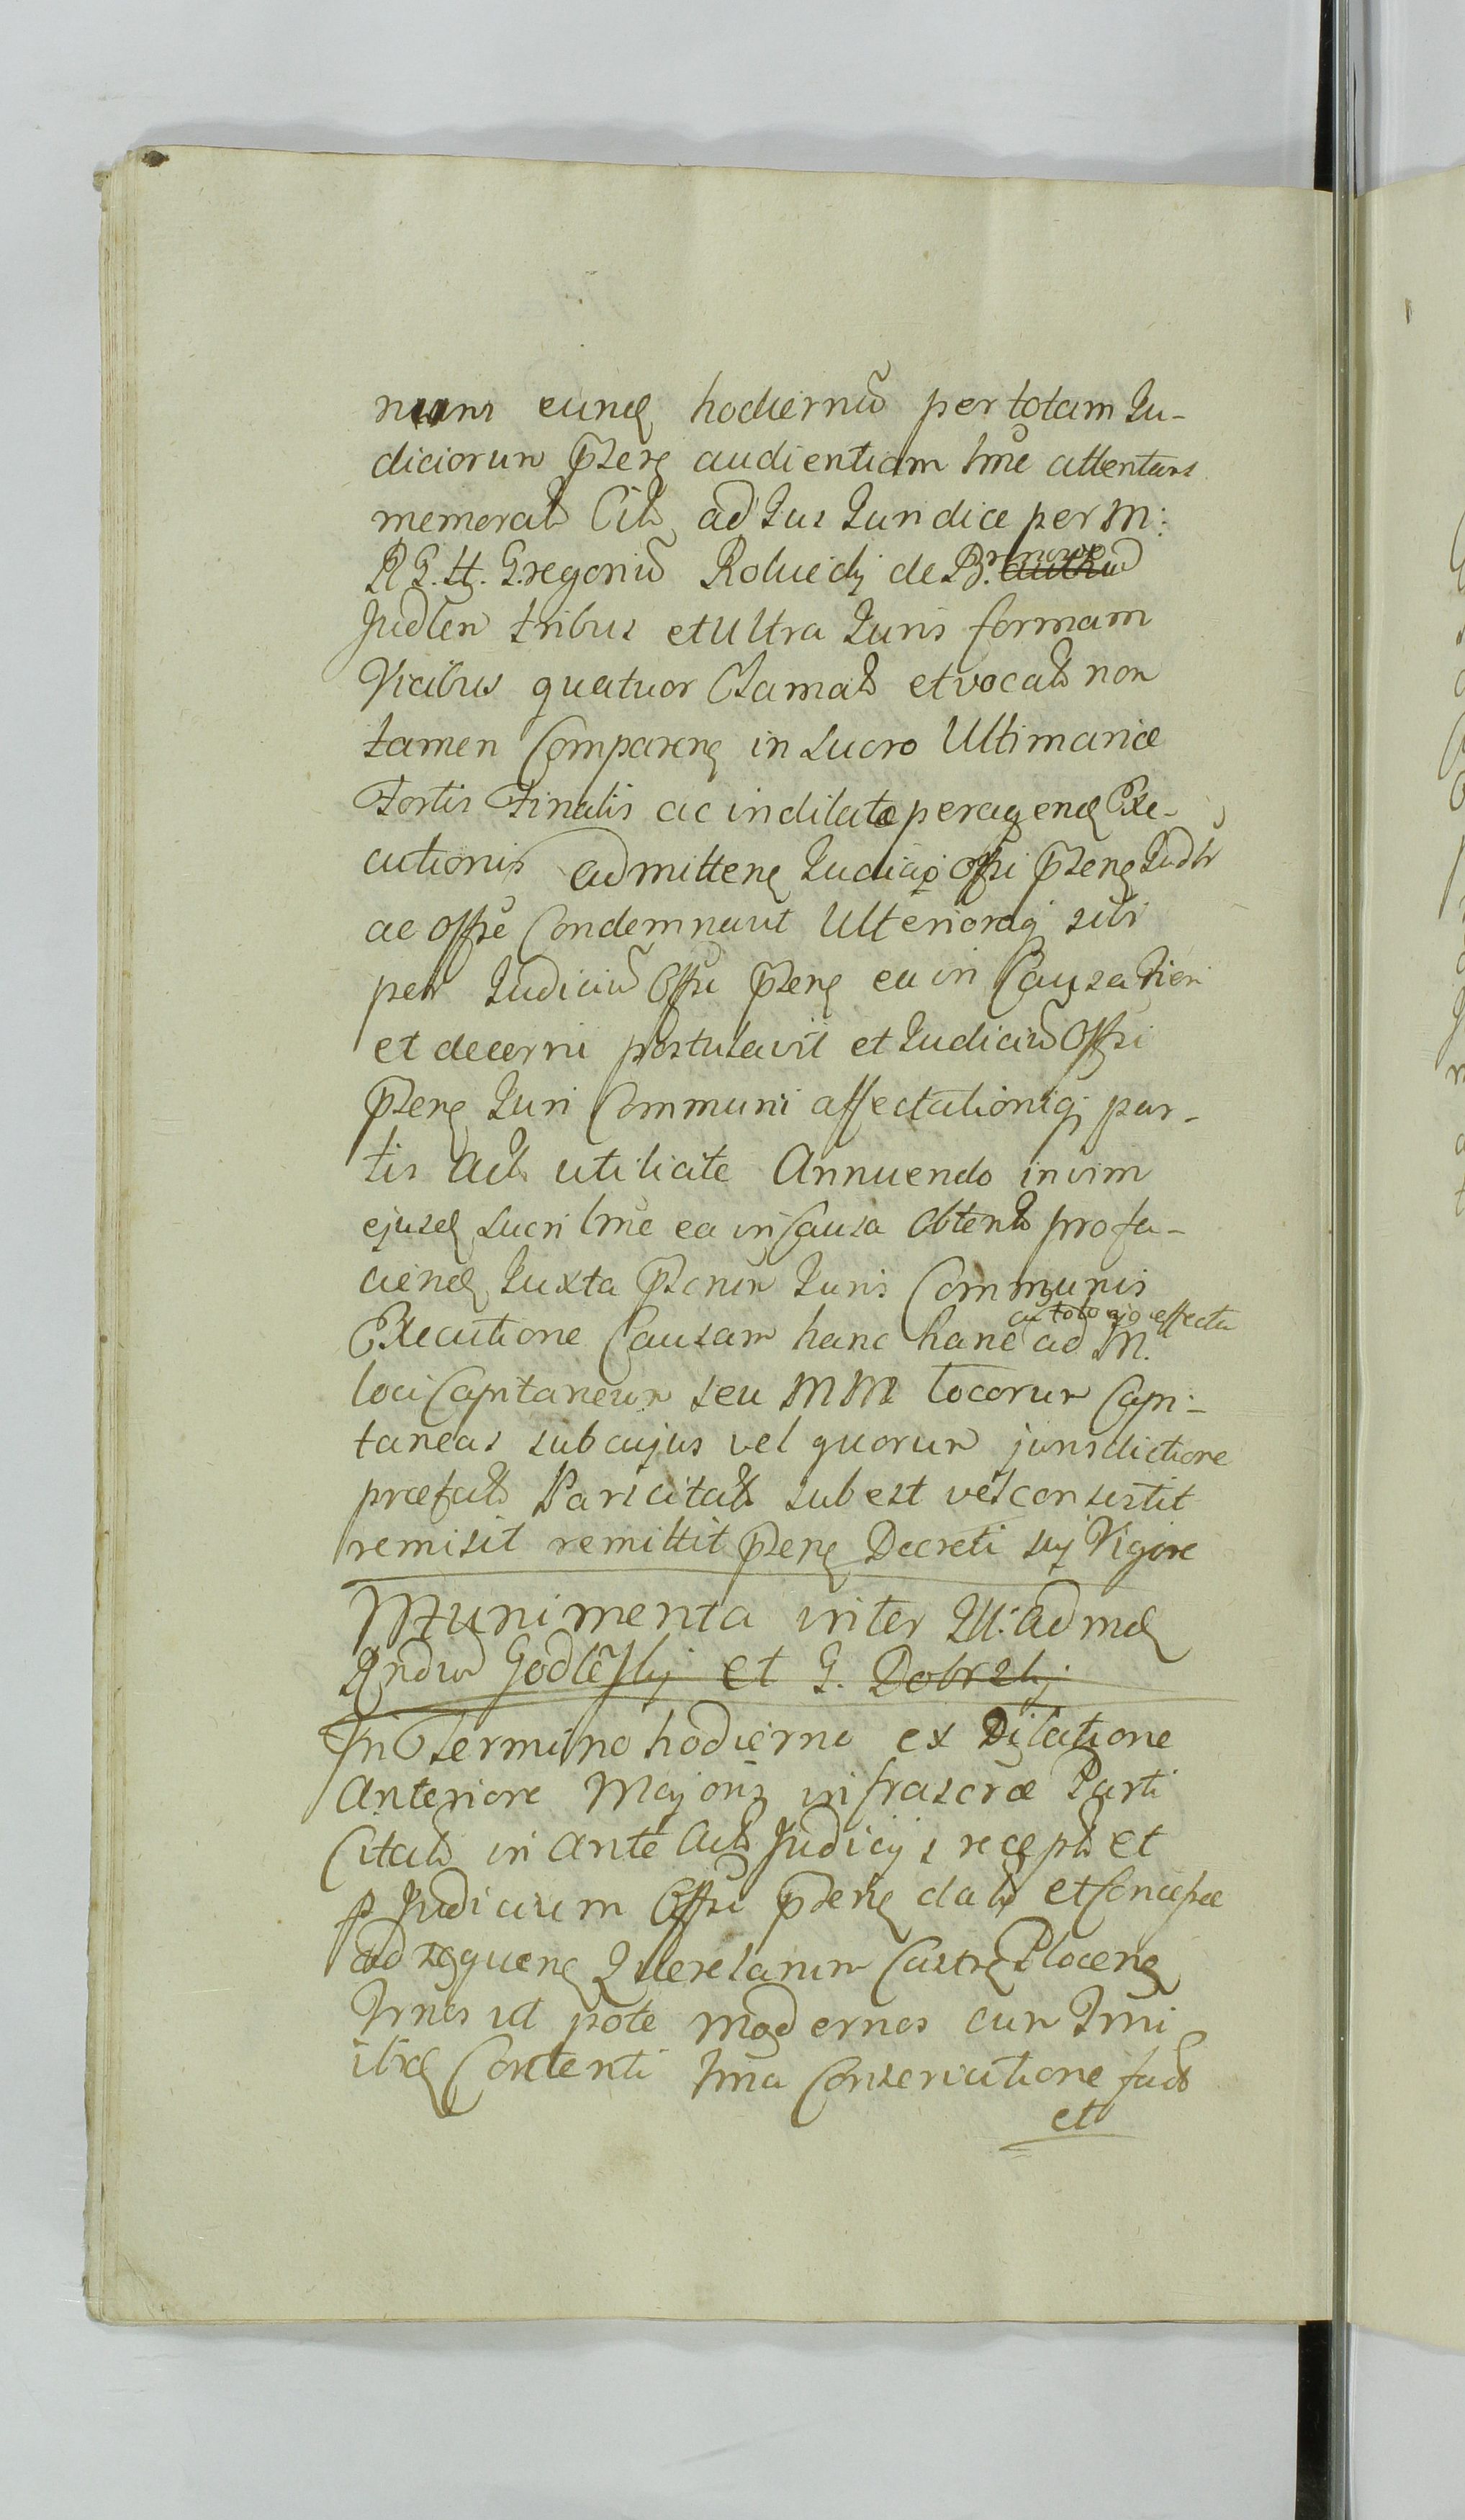 num eund hodiernũ per totam Iu-
diciorum p̃sen audientiam lm̃e attentans
memorat Cit ad Ius Iuridice per M:
R G. H. Gregoriũ Roluedj de Br.
Judlem tribus et Ultra Iuris formam
Vicibus quatuor Clamat et vocat non
tamen Comparen in Lucro Ultimariæ
Fortis Finalis ac indilatæ peragend Exe-
cutionis admitten Iudicio Offi p̃sen
ac Offse Condemnavit Ulteriorq sibi
per Iudiciũ Offi p̃sen ea in Causa Fieri
et decerni postulavit et Iudiciũ Offi
p̃sen Iuri Communi affectationiq par-
tis act utilicite Annuendo in vim
ejusd Lucri lm̃e ea in Causa Obtent pro fa-
ciend Iuxta p̃scrum Iuris Communis
cu toto ejo effectu
Executione Causam hanc hanc ad M.
loci Capitaneum seu MM locorum Capi-
taneas sub cujus vel quorum jurisdictione
præfat Pars citat subest vel consistit
remisit remittit p̃sen Decreti sui Vigore
Munimenta inter M. Adm
Andream Godlesky et G. Dobrsky
In Termino hodierno ex Dilatione
Anteriore Majoris infrascræ Parti
Citat in ante Act Judicijs recept et
p Judicium Offi p̃sen dat et Concessæ
ad sequen Querelarum Castren Plocen
Trm̃os ut pote modernos cum Trm̃i
ibid Contenti Trm̃a Conservatione fact
et